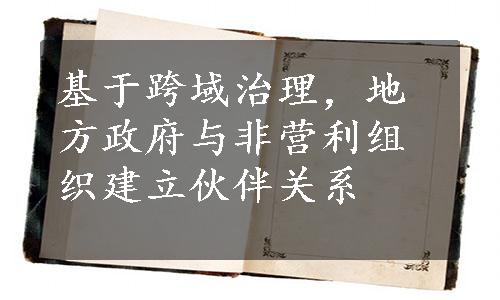 基于跨域治理，地
方政府与非营利组
织建立伙伴关系